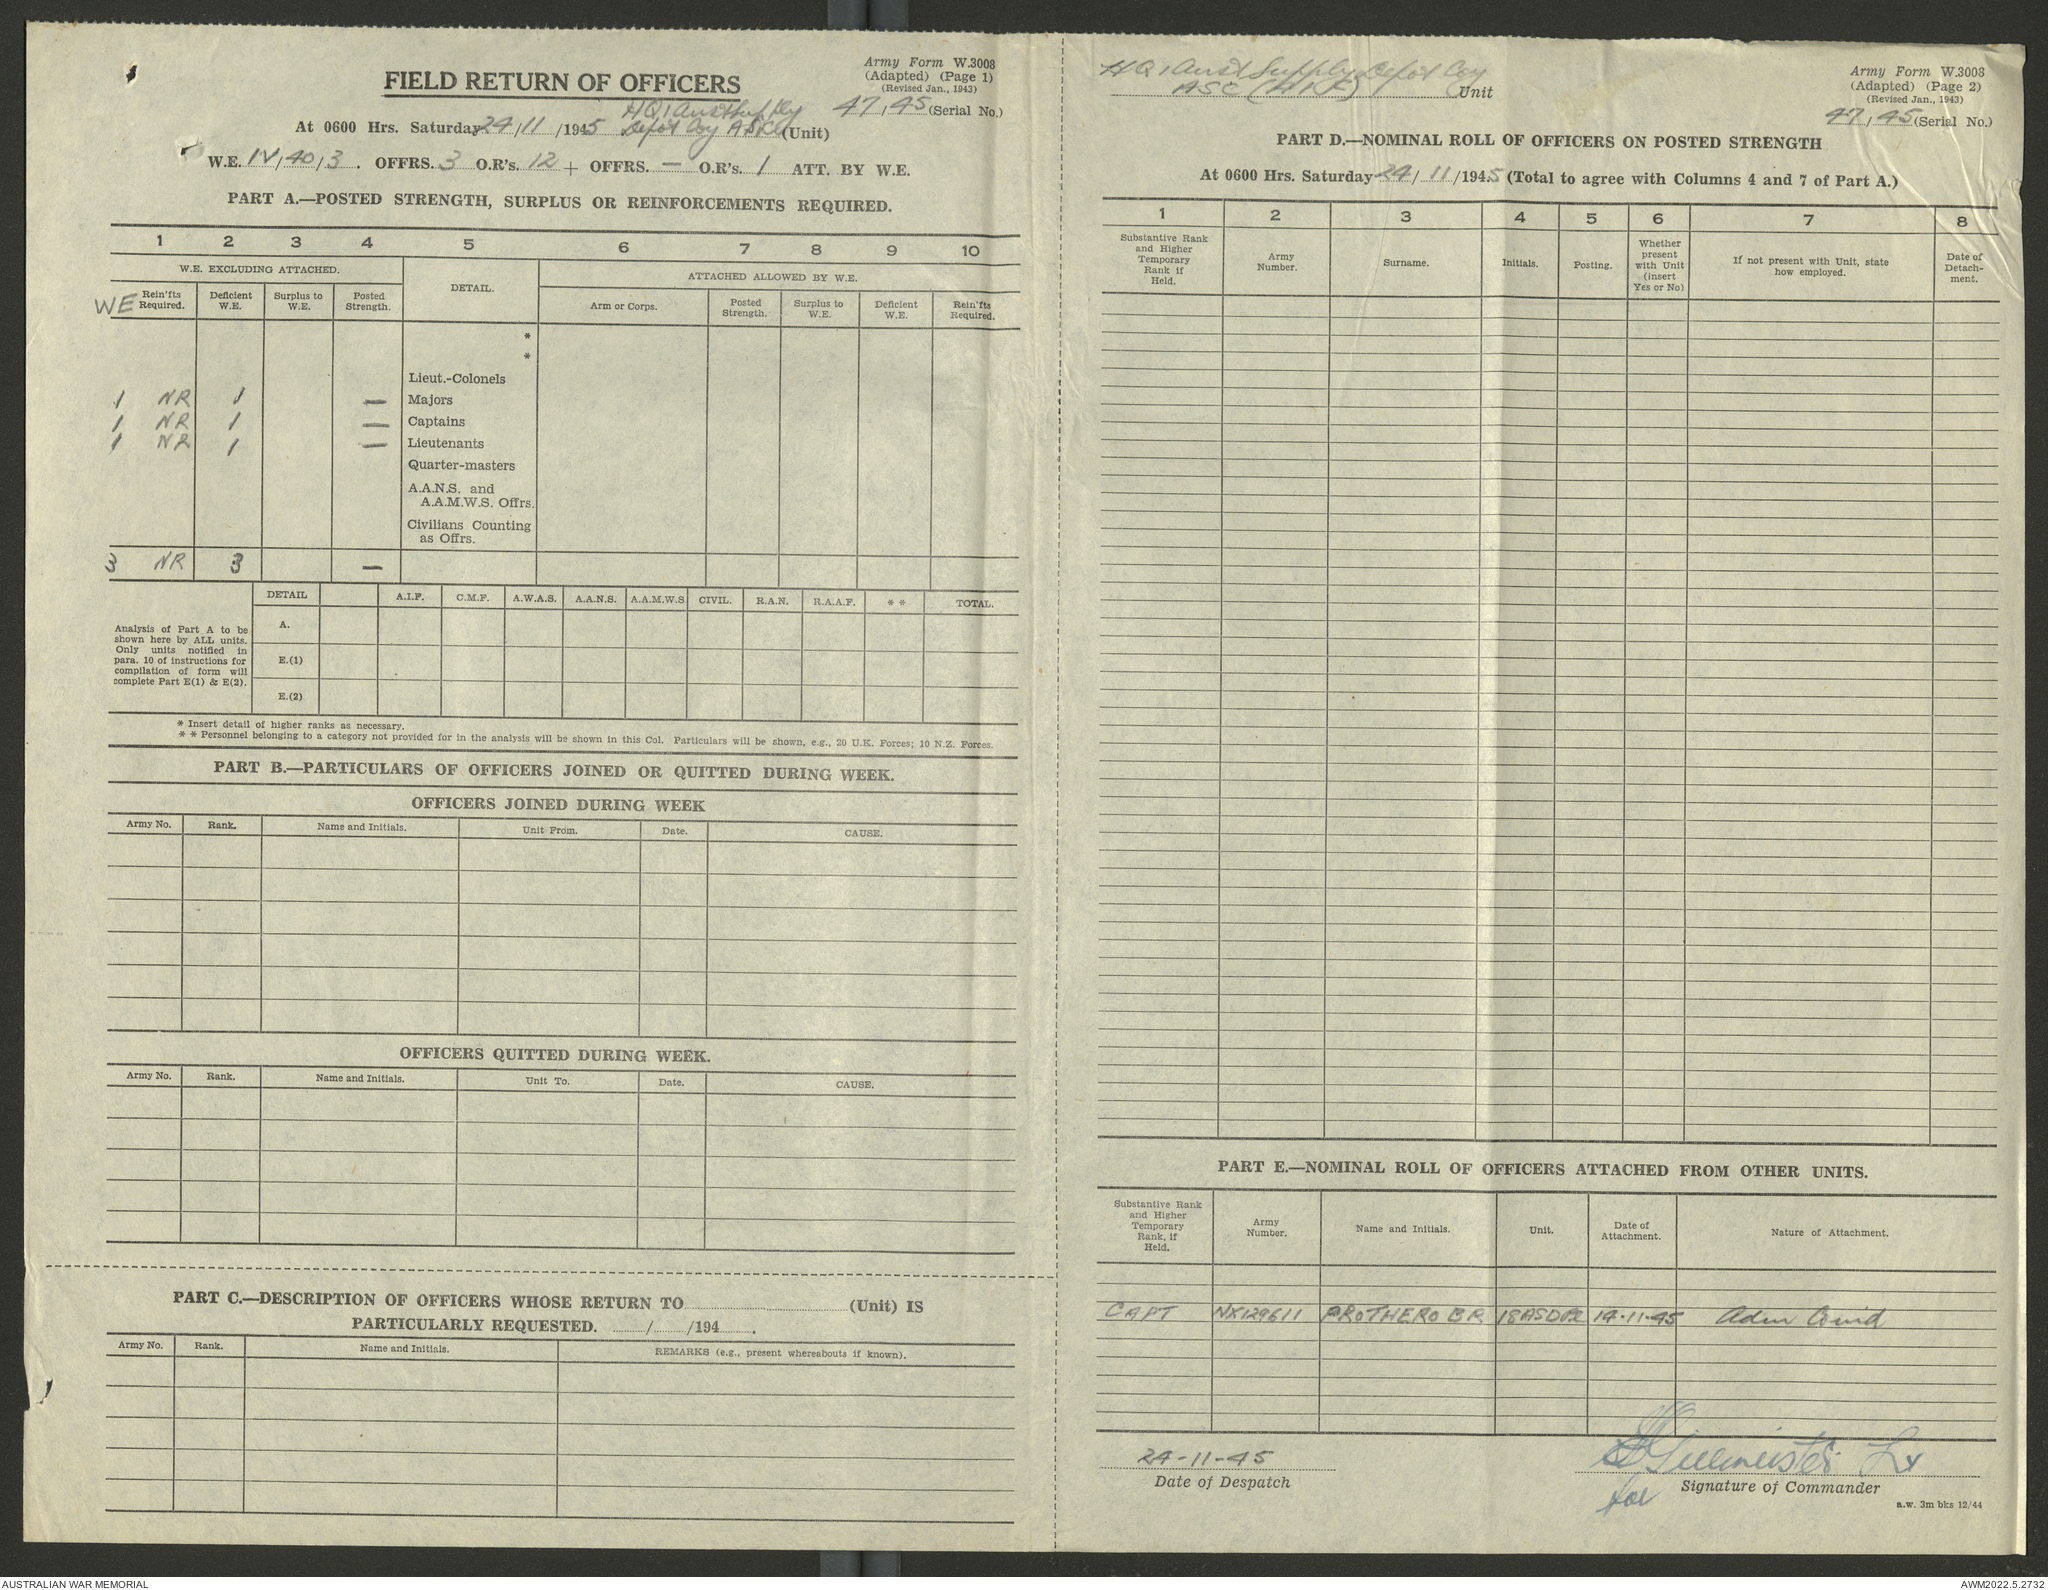 FIELD RETURN OF OFFICERS
Army Form W.3008
(Adapted) (Page 1)
(Revised Jan., 1943)
47/45 (Serial No.)
At 0600 Hrs. Saturday 24/11/1945 HQ 1 Aust Supply Depot Coy (Unit)
W.E. IV/40/3. OFFRS. 3 O.R's. 12 + OFFRS. — O.R's. 1 ATT. BY W.E.
PART A.—POSTED STRENGTH, SURPLUS OR REINFORCEMENTS REQUIRED.
1 2 3 4 5 6 7 8 9 10
W.E. EXCLUDING ATTACHED. DETAIL. ATTACHED ALLOWED BY W.E.
WE Rein'fts Required. Deficient W.E. Surplus to W.E. Posted Strength. Arm or Corps. Posted Strength. Surplus to W.E. Deficient W.E. Rein'fts Required.
*
*
Lieut.-Colonels
1 NR 1 — Majors
1 NR 1 — Captains
1 NR 1 — Lieutenants
Quarter-masters
A.A.N.S. and
A.A.M.W.S. Offrs.
Civilians Counting
as Offrs.
3 NR 3 —
DETAIL A.I.F. C.M.F. A.W.A.S. A.A.N.S. A.A.M.W.S CIVIL. R.A.N. R.A.A.F. * * TOTAL.
Analysis of Part A to be
shown here by ALL units.
Only units notified in
para. 10 of instructions for
compilation of form will
complete Part E(1) & E(2).
A.
E.(1)
E.(2)
* Insert detail of higher ranks as necessary.
* * Personnel belonging to a category not provided for in the analysis will be shown in this Col. Particulars will be shown, e.g., 20 U.K. Forces; 10 N.Z. Forces.
PART B.—PARTICULARS OF OFFICERS JOINED OR QUITTED DURING WEEK.
OFFICERS JOINED DURING WEEK
Army No. Rank. Name and Initials. Unit From. Date. CAUSE.
OFFICERS QUITTED DURING WEEK.
Army No. Rank. Name and Initials. Unit To. Date. CAUSE.
PART C.—DESCRIPTION OF OFFICERS WHOSE RETURN TO (Unit) IS
PARTICULARLY REQUESTED. / /194 .
Army No. Rank. Name and Initials. REMARKS (e.g., present whereabouts if known).
HQ 1 Aust Supply Depot Coy
ASC (AIF) Unit
Army Form W.3008
(Adapted) (Page 2)
(Revised Jan., 1943)
47/45 (Serial No.)
PART D.—NOMINAL ROLL OF OFFICERS ON POSTED STRENGTH
At 0600 Hrs. Saturday 24/11/1945 (Total to agree with Columns 4 and 7 of Part A.)
1 2 3 4 5 6 7 8
Substantive Rank and Higher Temporary Rank if Held. Army Number. Surname. Initials. Posting. Whether present with Unit (insert Yes or No) If not present with Unit, state how employed. Date of Detach-ment.
PART E.—NOMINAL ROLL OF OFFICERS ATTACHED FROM OTHER UNITS.
Substantive Rank and Higher Temporary Rank, if Held. Army Number. Name and Initials. Unit. Date of Attachment. Nature of Attachment.
CAPT NX129611 PROTHERO BR 18ASDPL 14-11-45 Adm
24-11-45
Date of Despatch
for Signature of Commander
a.w. 3m bks 12/44
AUSTRALIAN WAR MEMORIAL
AWM2022.5.2732